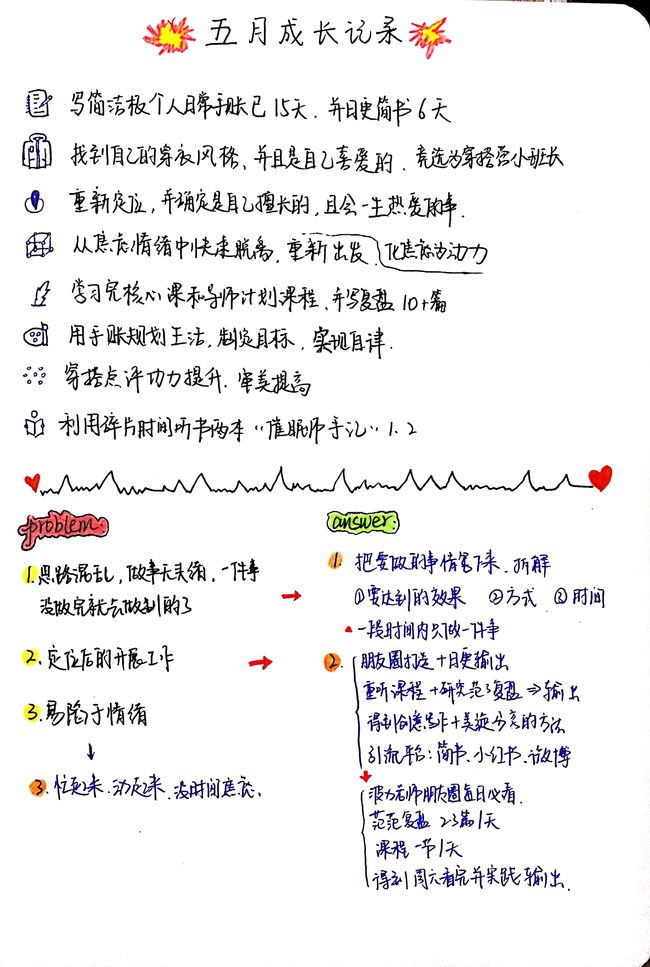 五月成长记录
写简洁版个人日常手账已15天，并日更简书6天
找到自己的穿衣风格，并且是自己喜爱的，竞选为穿搭营小班长
重新定位，并确定是自己擅长的，且会一生热爱的事.
从焦虑情绪中快速脱离，重新出发，化焦虑为动力
学习完核心课和导师计划课程，并写复盘10+篇
用手账规划生活，制定目标，实现自律.
穿搭点评功力提升，审美提高
利用碎片时间听书两本“催眠师手记”1.2
problem
1.思路混乱，做事无头绪，一件事
没做完就去做别的了
2.定位后的开展工作
3.易陷于情绪
3.忙起来，动起来，没时间焦虑.
answer
1.把要做的事情写下来，拆解
①要达到的效果 ②方式 ③时间
一段时间内只做一件事
2.朋友圈打造+日更输出
重听课程+研究范范复盘⇒输出
得到创意写卡+美妆分享的方法
引流平台：简书、小红书、微博
老师朋友圈每日必看.
范范复盘 2-3篇1天
课程一节1天
得到周六看完并实践输出.